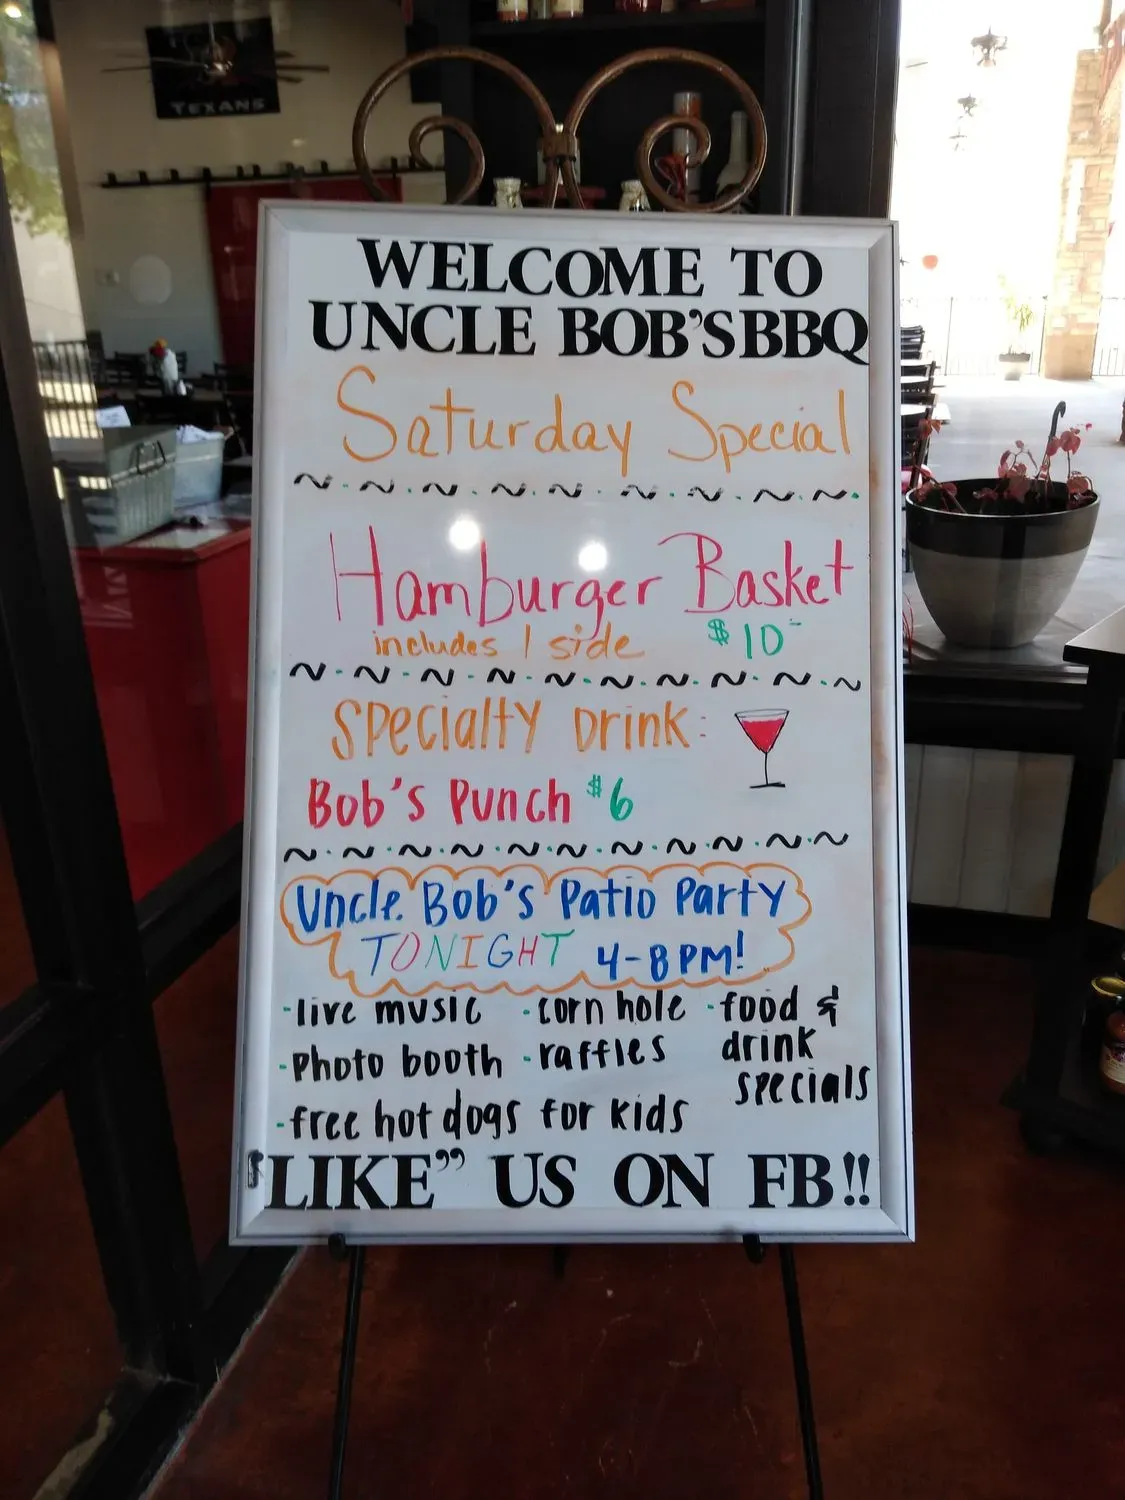 TEXANS
WELCOME TO
UNCLE BOB'S BBQ
Saturday Special
Hamburger Basket
includes 1 side $10-
Specialty Drink:
Bob's Punch $6
Uncle Bob's Patio Party
TONIGHT 4-8PM!
-live music -corn hole -food &
-photo booth -raffles drink
specials
-free hot dogs for kids
"LIKE" US ON FB!!